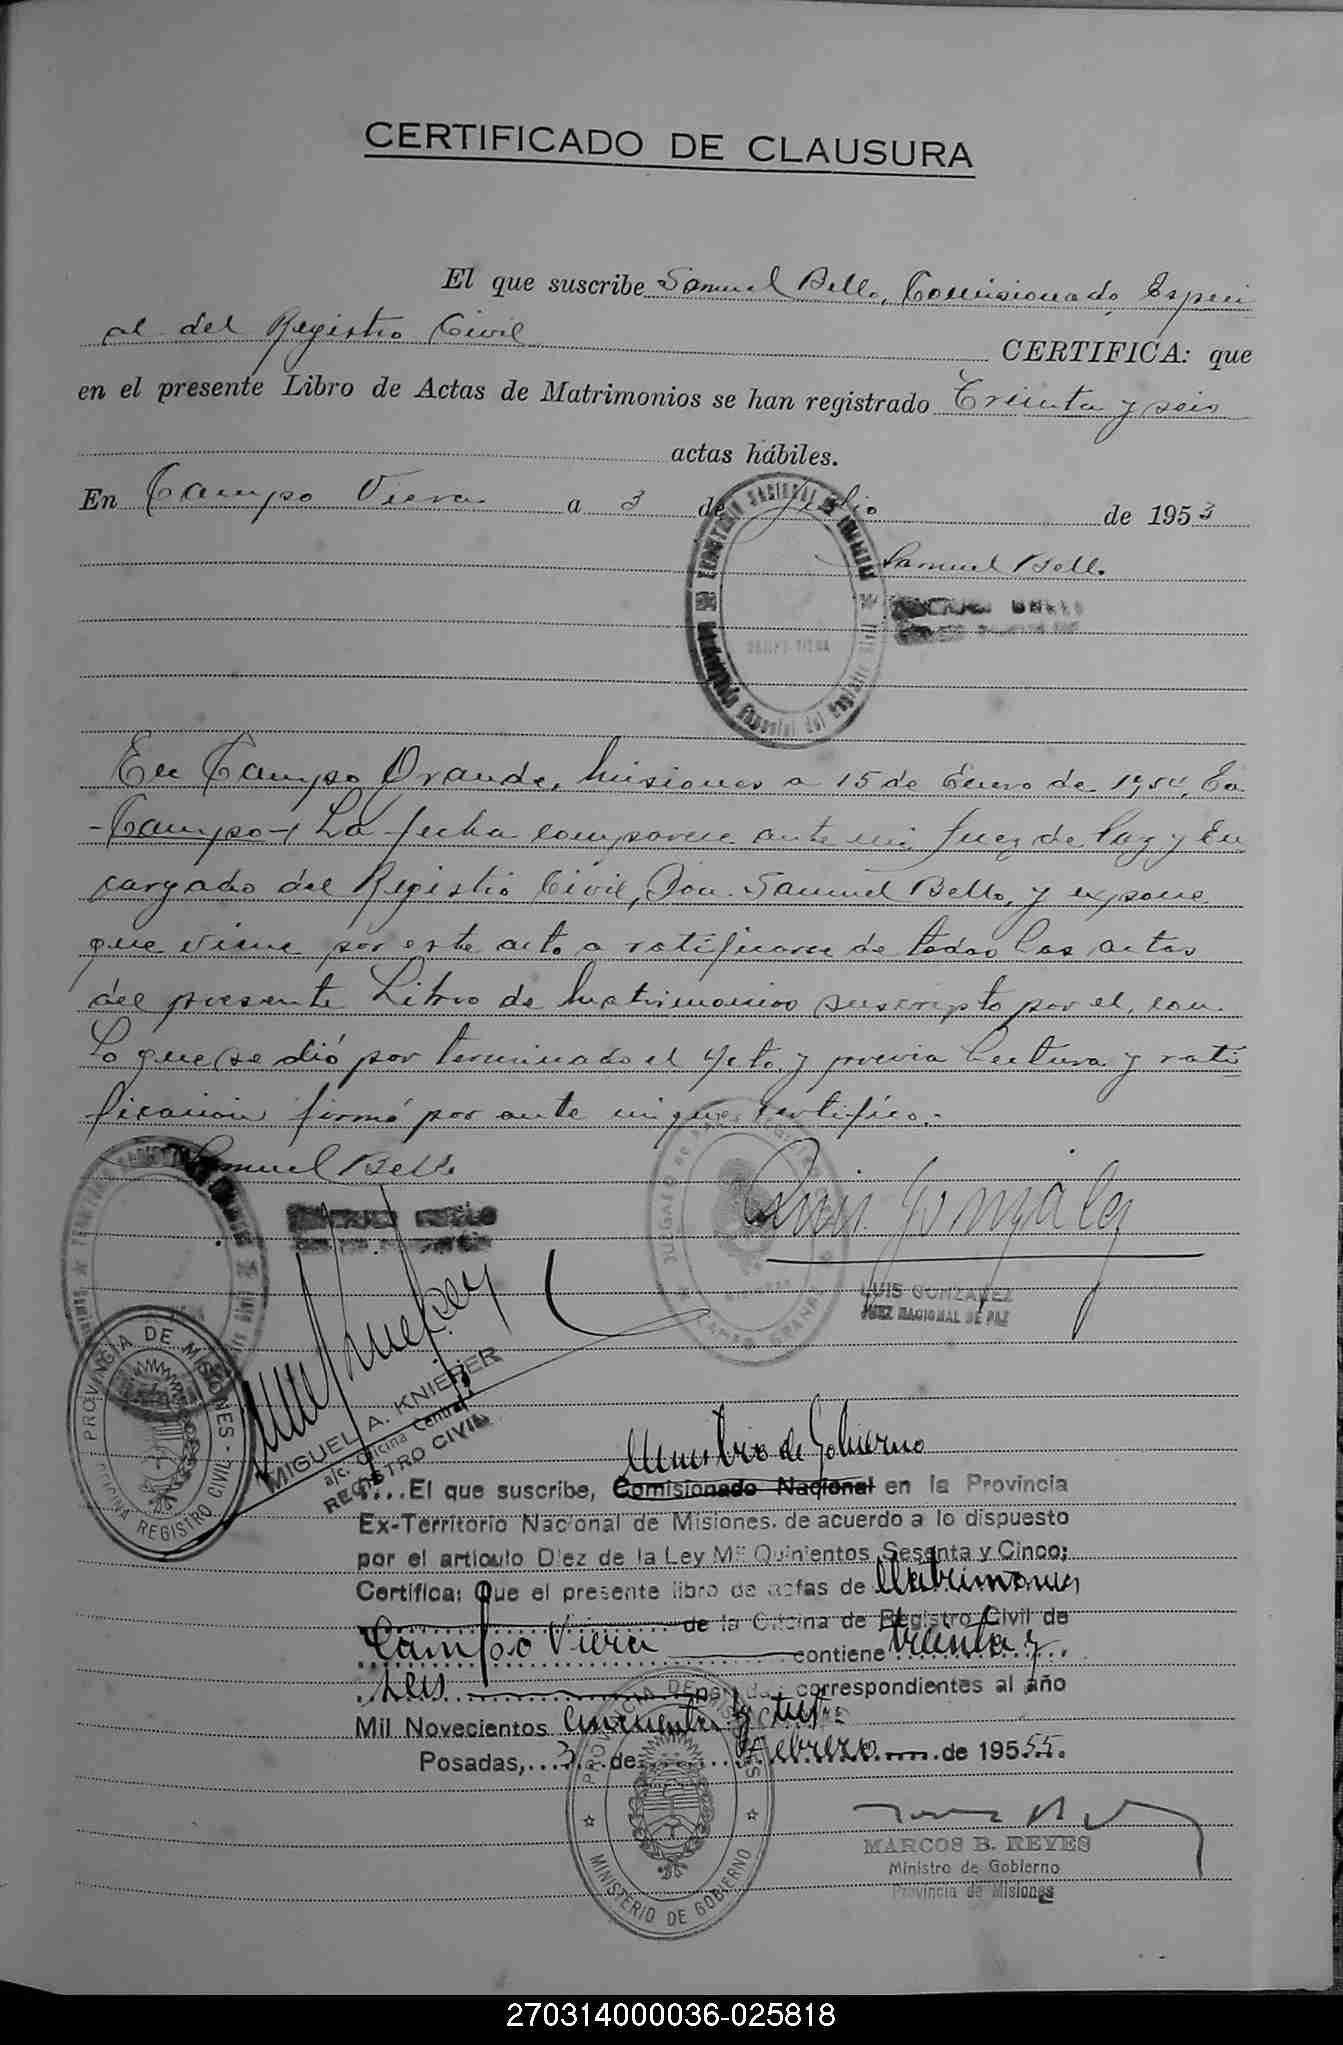 CERTIFICADO DE CLAUSURA
El que suscribe Samuel Bello, Comisionado Especi
al del Registro Civil CERTIFICA: que
en el presente Libro de Actas de Matrimonios se han registrado Treinta y seis
actas hábiles.
En Campo Viera a 3 de Julio de 1953
Samuel Bello
SAMUEL BELLO
En Campo Grande, Misiones a 15 de Enero de 1954, En
-Campo- La fecha comparece ante mi Juez de Paz y En
cargado del Registro Civil, Don Samuel Bello, y expone
que viene por este acto a ratificarse de todas las actas
del presente Libro de Matrimonios suscripto por el, con
lo que se dió por terminado el Acto y previa lectura y rati
ficación firmó por ante mi que certifico.
Samuel Bello
SAMUEL BELLO
Luis González
LUIS GONZALEZ
JUEZ NACIONAL DE PAZ
JUZGADO DE PAZ
CAMPO GRANDE
PROVINCIA DE MISIONES
OFICINA REGISTRO CIVIL
MIGUEL A. KNIEPER
a/c. Oficina Central
REGISTRO CIVIL
Ministro de Gobierno
El que suscribe, Comisionado Nacional en la Provincia
Ex-Territorio Nacional de Misiones, de acuerdo a lo dispuesto
por el artículo Diez de la Ley Mil Quinientos Sesenta y Cinco;
Certifica: Que el presente libro de actas de Matrimonios
de la Oficina de Registro Civil de
Campo Viera contiene treinta y
seis correspondientes al año
Mil Novecientos cincuenta y tres
Posadas, 3 de Febrero de 1955.
PROVINCIA DE MISIONES
MINISTERIO DE GOBIERNO
MARCOS B. REYES
Ministro de Gobierno
Provincia de Misiones
270314000036-025818